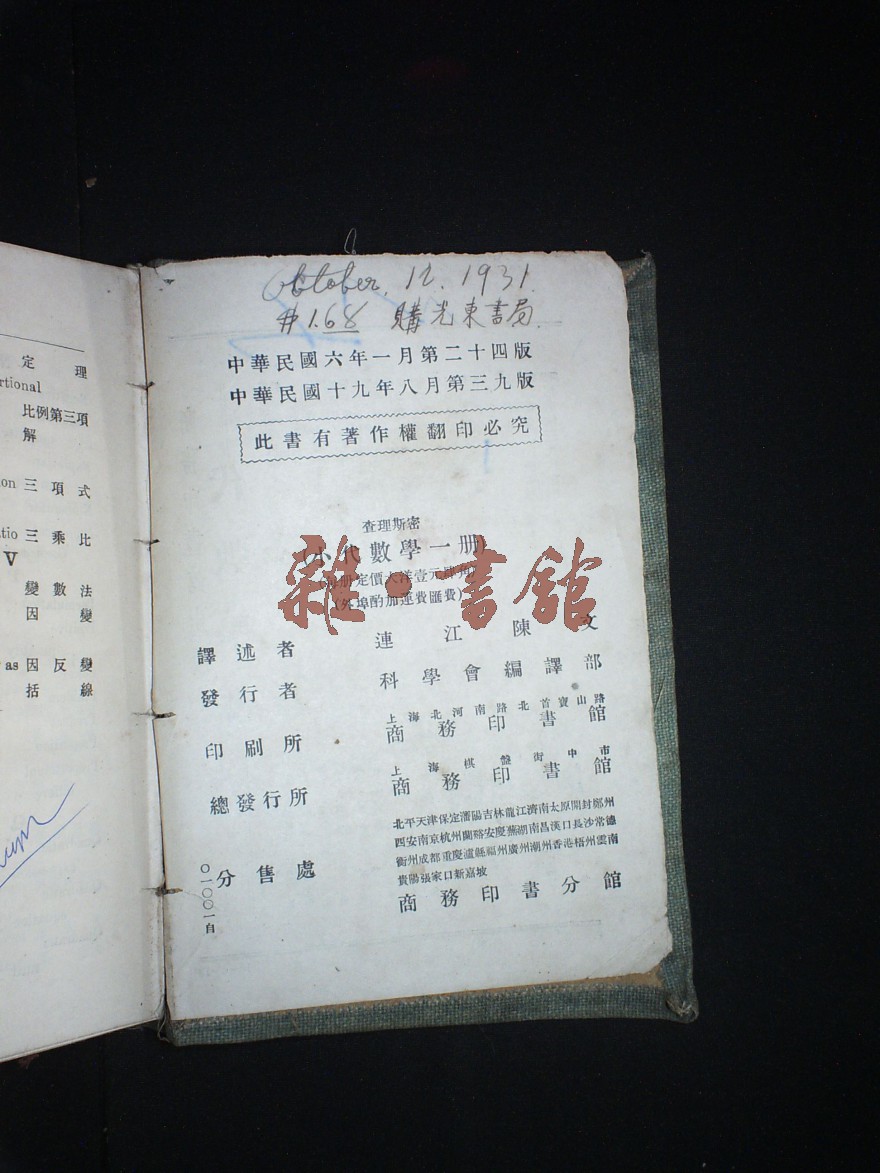 October. 12. 1931.
$1.68 購光東書局.
中華民國六年一月第二十四版
中華民國十九年八月第三九版
此書有著作權翻印必究
查理斯密
(小代數學一册)
(每册定價大洋壹元肆角)
(外埠酌加運費匯費)
譯述者 連江陳文
發行者 科學會編譯部
上海北河南路北首寶山路
印刷所 商務印書館
上海棋盤街中市
總發行所 商務印書館
北平天津保定瀋陽吉林龍江濟南太原開封鄭州
西安南京杭州蘭谿安慶蕪湖南昌漢口長沙常德
衡州成都重慶瀘縣福州廣州潮州香港梧州雲南
貴陽張家口新嘉坡
分售處 商務印書分館
〇一〇〇一自
雜·書館
定理
rtional
比例第三項
解
on 三項式
tio 三乘比
V
變數法
因變
as 因反變
括線